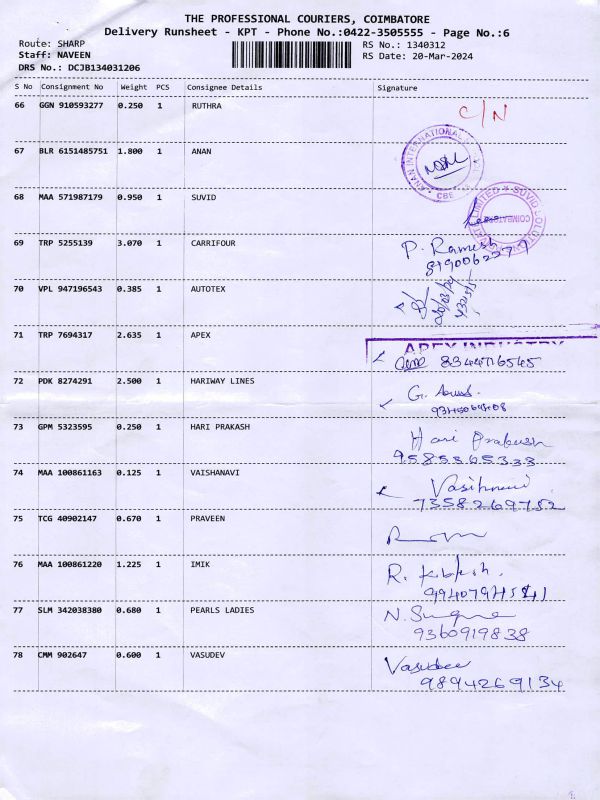 THE PROFESSIONAL COURIERS, COIMBATORE
Delivery Runsheet - KPT - Phone No.:0422-3505555 - Page No.:6
Route: SHARP
Staff: NAVEEN
DRS No.: DCJB134031206
RS No.: 1340312
RS Date: 20-Mar-2024
S No Consignment No Weight PCS Consignee Details Signature
66 GGN 910593277 0.250 1 RUTHRA C/N
67 BLR 6151485751 1.800 1 ANAN
ANAN INTERNATIONAL
CBE
68 MAA 571987179 0.950 1 SUVID
LIMITED ★ SUVID
COIMBATORE
69 TRP 5255139 3.070 1 CARRIFOUR P. Ramesh
70 VPL 947196543 0.385 1 AUTOTEX
20/03/24
71 TRP 7694317 2.635 1 APEX
APEX INDUSTRY
72 PDK 8274291 2.500 1 HARIWAY LINES G.
73 GPM 5323595 0.250 1 HARI PRAKASH Hari Prakash
9585365333
74 MAA 100861163 0.125 1 VAISHANAVI
7358269752
75 TCG 40902147 0.670 1 PRAVEEN
76 MAA 100861220 1.225 1 IMIK R.
77 SLM 342038380 0.680 1 PEARLS LADIES N.
9360919838
78 CMM 902647 0.600 1 VASUDEV Vasudev
9894269134